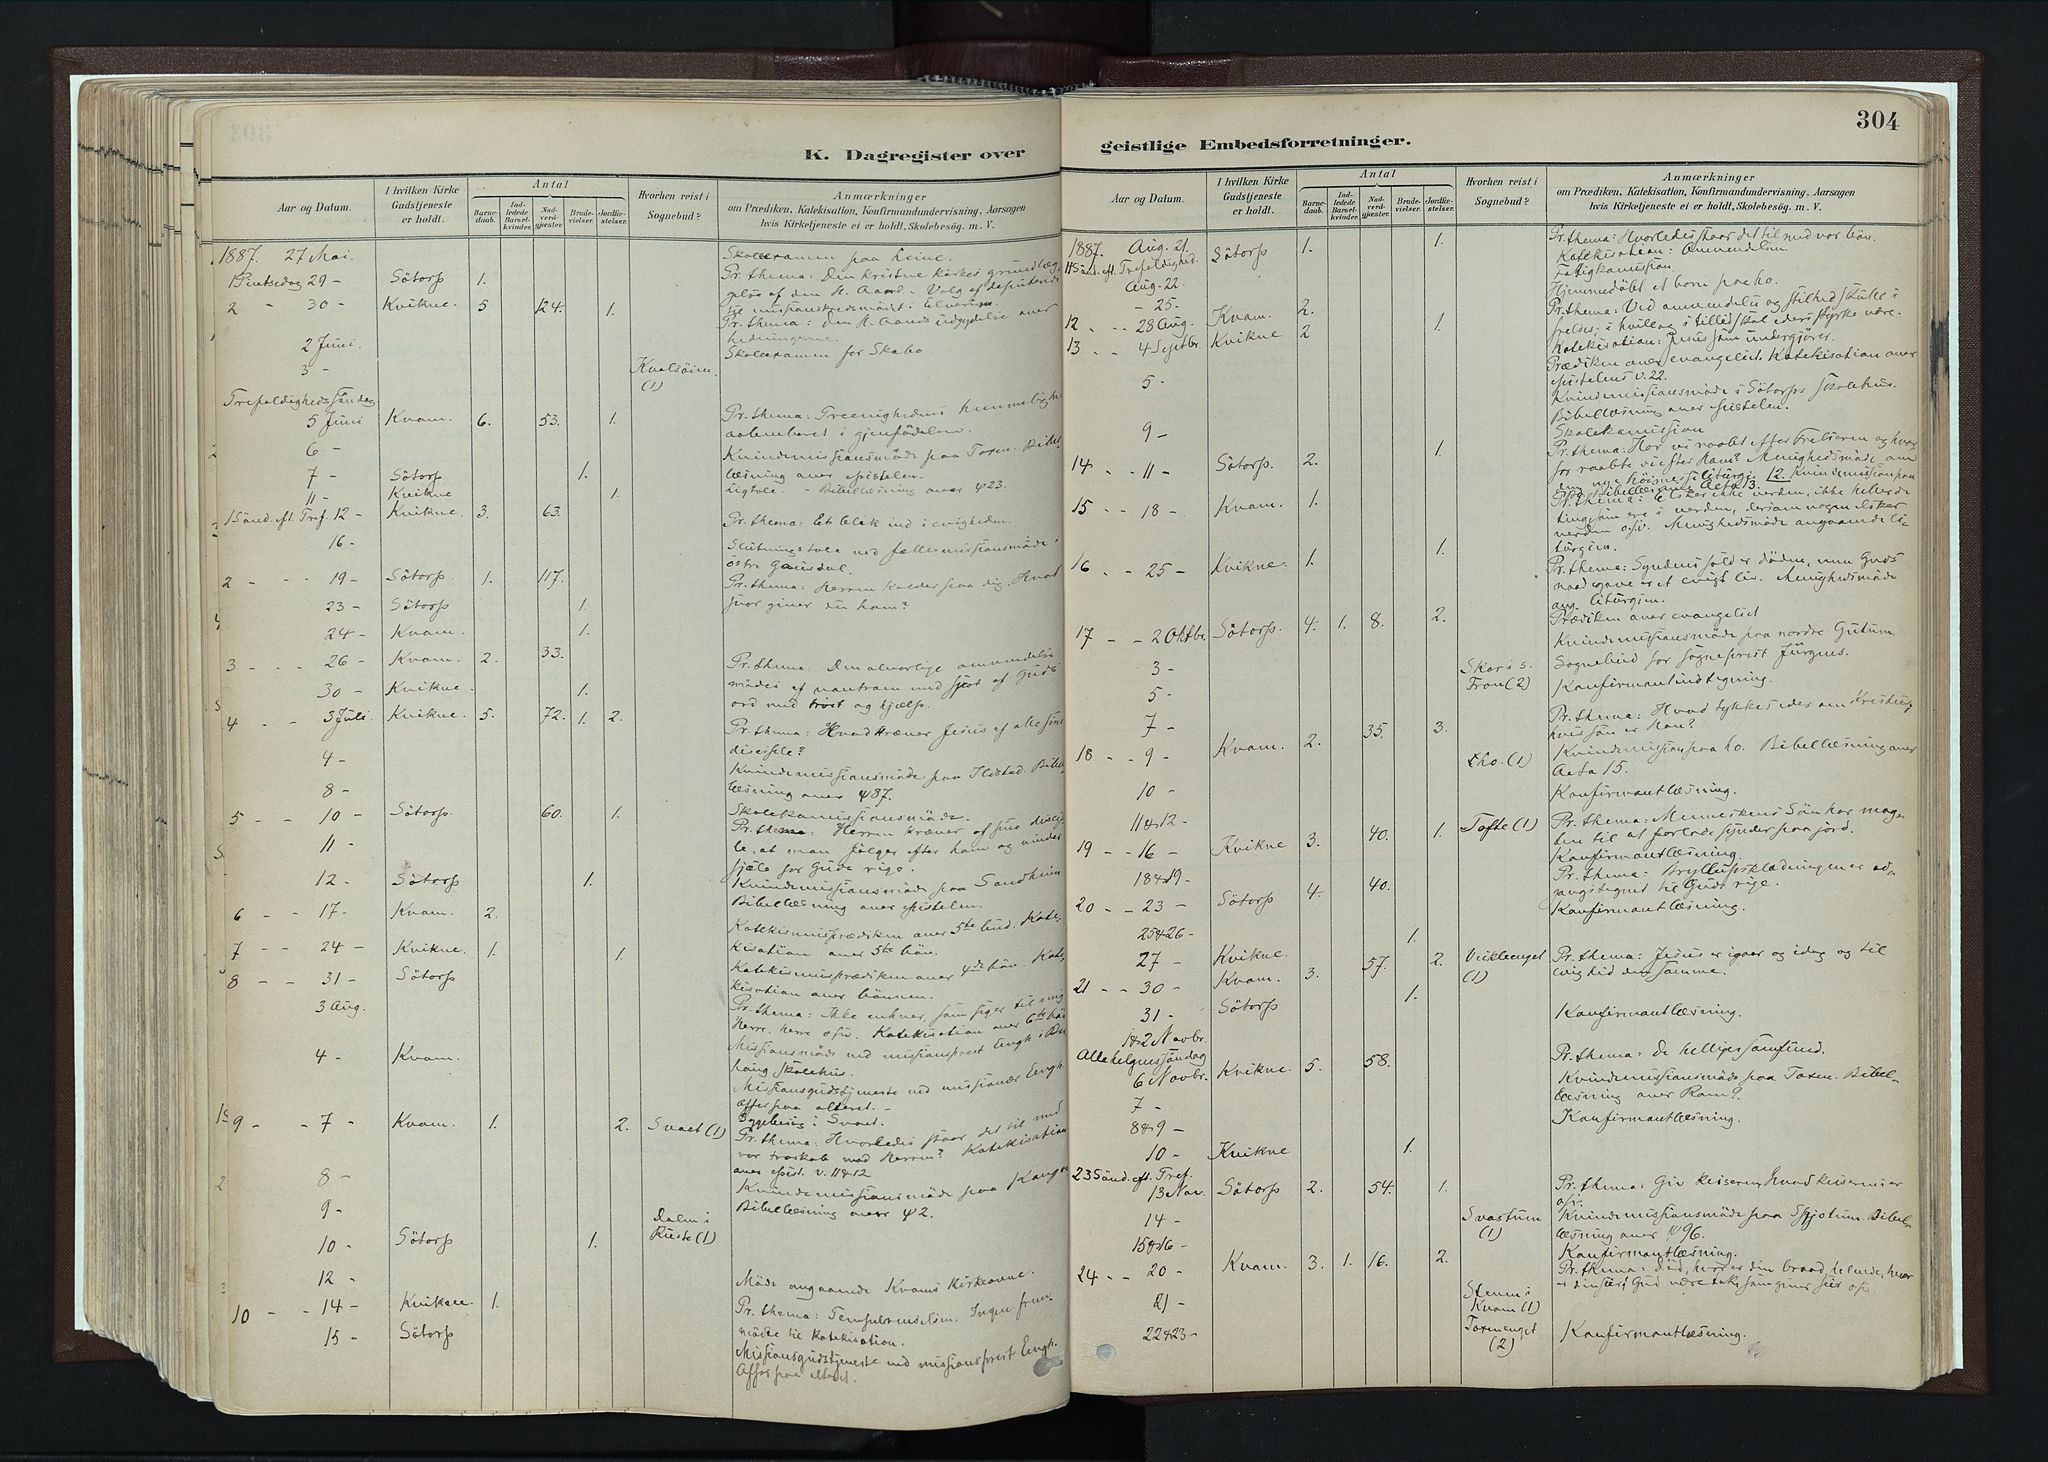 K. Dagregister over
Aar og Datum.
I hvilken Kirke Gudstjeneste er holdt.
Antal
Barnedaab.
Indledede Barselkvinder.
Nadverdgjæster.
Brudevielser.
Jordfæstelser.
Hvorhen reist i Sognebud?
Anmærkninger
om Prædiken, Katekisation, Konfirmandundervisning, Aarsagen
hvis Kirketjeneste ei er holdt, Skolebesøg. m. V.
1887. 27 Mai.
1 Pintsedag 29 - Sötorp 1.
2 30 - Kvikne. 5 124. 1.
2 Juni. Skoleexamen for Skabo
3 -
(1)
Trefoldigheds Söndag
5 Juni Kvam. 6. 53. 1.
6 -
7 - Sötorp 1.
11 - Kvikne 1. Ligtale. - Bibellæsning over ψ23.
1 Sönd. eft. Tref. 12 - Kvikne. 3. 63. Pr. thema: Et blik ind i evigheden.
16 - Slutningstale ved fællesmissionsmöde i
östre Gausdal.
2 - - 19 - Sötorp. 1. 117. Pr. thema: Herren kalder paa dig. Hvad
svar giver du ham?
23 - Sötorp 1.
24 - Kvam. 1.
3 - - 26 - Kvam. 2. 33. Pr. thema: Den alvorlige omvendelse
ord med tröst og hjælp.
30 - Kvikne. 1.
4 - - 3 Juli. Kvikne. 5. 72. 1. 2. Pr. thema: Hvad kræver Jesus af alle sine
disciple?
4 - Kvindemissionsmöde paa Ilstad. Bibel
læsning over ψ87.
8 - Skolekomissionsmöde.
5 - - 10 - Sötorp. 60. 1. Pr. thema: Herren kræver af sine discip
le, at man fölger efter ham og vinder
sjæle for Guds rige.
11 - Kvindemissionsmöde paa Sandheim
Bibellæsning over epistelen.
12 - Sötorp 1.
6 - - 17 - Kvam. 2. Katekismusprædiken over 5te bud. Kate,
kisation over 5te bön.
7 - - 24 - Kvikne. 1. 1. Katekismusprædiken over 4de bön. Kate,
kisation over bönnen.
8 - - 31 - Sötorp Pr. thema: Ikke enhver, som siger til mig
Herre, herre osv. Katekisation over 6te bön
3 Aug. Missionsmöde ved missionsprest Engh i
skolehus.
4 - Kvam. Missionsgudstjeneste ved missionær Engh
Offer paa alteret. -
9 - - 7 - Kvam. 1. 2. Svaet (1) Sygebesög i Svaet.
Pr. thema: Hvorledes staar det til med
vor troskab mod Herren? Katekisation
over epist. v. 11&12
8 - Kvindemissionsmöde paa
Bibellæsning over ψ2.
9 -
Dalen i
10 - Sötorp 1. Ruste (1)
12 - Möde angaaende Kvams kirkeovne.
10 - - 14 - Kvikne. 1. Pr. thema: Tempelrenselsen. Ingen frem
mödte til Katekisation.
15 - Sötorp Missionsgudstjeneste ved missionsprest Engh.
Offer paa alteret.
geistlige Embedsforretninger.
304
Aar og Datum.
I hvilken Kirke Gudstjeneste er holdt.
Antal
Barnedaab.
Indledede Barselkvinder.
Nadverdgjæster.
Brudevielser.
Jordfæstelser.
Hvorhen reist i Sognebud?
Anmærkninger
om Prædiken, Katekisation, Konfirmandundervisning, Aarsagen
hvis Kirketjeneste ei er holdt, Skolebesøg. m. V.
1887. Aug. 21. Sötorp 1. 1. Pr. thema: Hvorledes staar det til med vor bön.
11 Sönd. eft. Trefoldighed. Katekisation: Omvendelsen.
Aug. 22 Fatigkomission.
- 25 - Hjemmedöbt et barn paa ho.
12 - - 28 Aug. Kvam. 2. Pr. thema: Ved omvendelse og stilhed skulle i
frelses; i hvile og i tillid skal eders styrke være.
Katekisation: Jesus som undergjörer.
13 - - 4 Septbr. Kvikne 2 1. Prædiken over evangeliet. Katekisation over
epistelens v. 22.
5 - Kvindemissionsmöde i Sötorps skolehus.
Bibellæsning over epistelen.
9 - Skolekomission
14 - - 11 - Sötorp. 2. 1. Pr. thema: Har vi raabt efter Frelseren og hvor
for raabte vi efter ham? Menighedsmöde om
den nye höimesseliturgi. 12. Kvindemission paa
Bibellæsning Acta 3.
15 - - 18 - Kvam. 1. Pr. thema: Elsker ikke verden, ikke heller de
ting som ere i verden, dersom nogen elsker
verden osv. Menighedsmöde angaaende li-
turgien.
16 - - 25 - Kvikne. 1. 1. Pr. thema: Syndens sold er döden, men Guds
naadegave er et evigt liv. Menighedsmöde
ang. liturgien.
17 - - 2 Oktbr. Sötorp. 4. 1. 8. 2. Prædiken over evangeliet
3 - Kvindemissionsmöde paa nordre Gutum.
Skar i s.
Fron (2)
5 - Sognebud for sogneprest Jürgens.
7 - Konfirmantindtegning.
18 - - 9 - Kvam. 2. 35. 3. Pr. thema: Hvad tykkes eder om Kristus,
hvis sön er han?
10 - (1) Kvindemission paa ho. Bibellæsning over
Acta 15.
11&12 - Konfirmantlæsning.
19 - - 16 - Kvikne 3. 40. 1. Tofte (1) Pr. thema: Menneskens Sön har mag-
ten til at forlade synder paa jord.
18&19 - Konfirmantlæsning.
20 - - 23 - Sötorp 4. 40. Pr. thema: Bryllupsklædningen er ad,
gangstegnet til Guds rige.
25&26 - Konfirmantlæsning.
27 - Kvikne. 1.
21 - - 30 - Kvam. 3. 57. 2. (1) Pr. thema: Jesus er igaar og idag og til
evig tid den samme.
31 - Sötorp 1.
1&2 Novbr. Konfirmantlæsning.
Allehelgenssöndag
6 Novbr. Kvikne. 5. 58. Pr. thema: De helliges samfund.
7 - Kvindemissionsmöde paa Toxen. Bibel-
læsning over Rom?
8&9 - Konfirmantlæsning.
10 - Kvikne 1.
23 Sönd. eft. Tref.
13 Nov. Sötorp 2. 54. 1. Pr. thema: Giv keiseren, hvad keiserens er
osv.
14 - Svastum
(1) Kvindemissionsmöde paa Bibel-
læsning over ψ96.
15&16 - Konfirmantlæsning.
24 - - 20 - Kvam. 3. 1. 16. 2. Pr. thema: Död, hvor er din braad, helvede, hvor
er din seir; Gud være tak, som giver seir osv.
21 - Steen i
Kvam (1)
22&23 - Toxenenget
(2) Konfirmantlæsning.